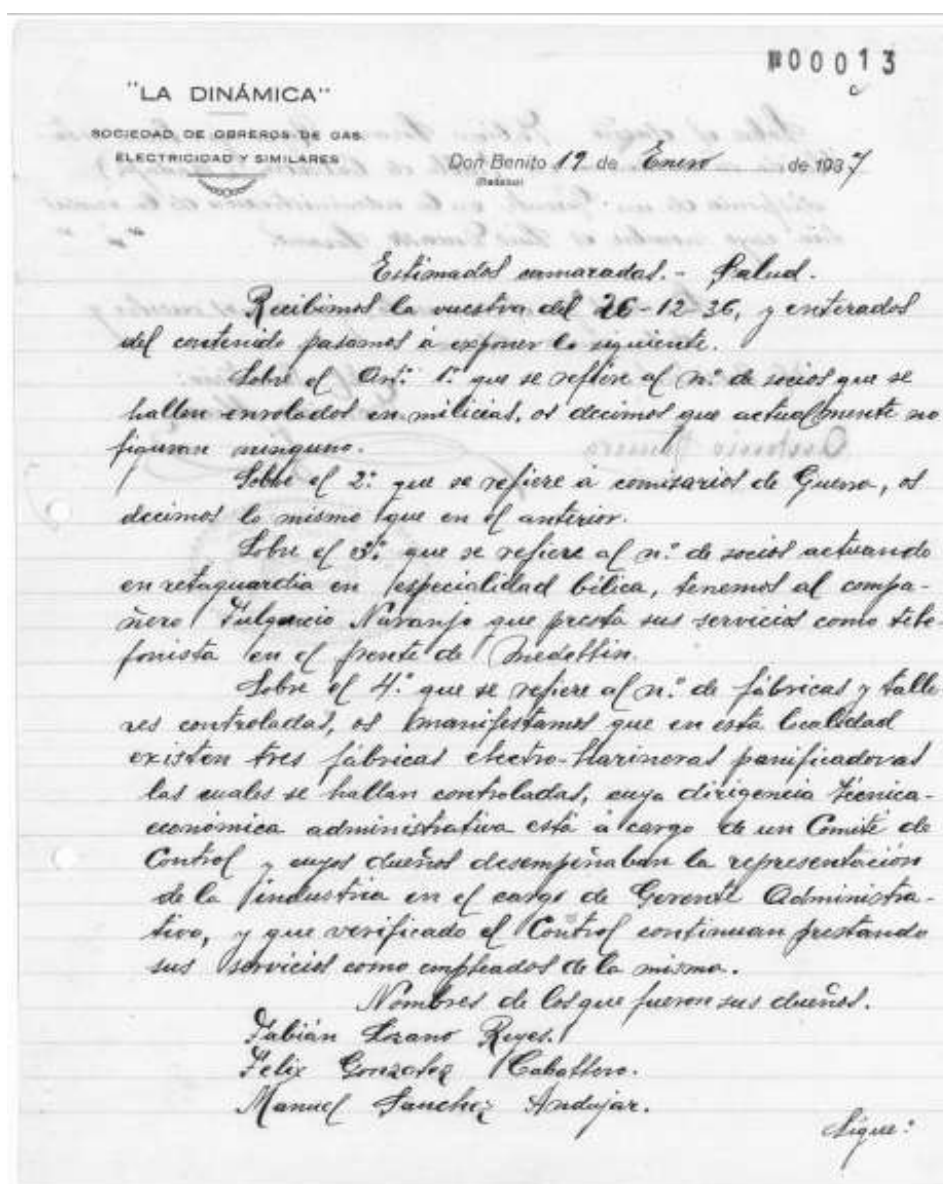 Nº 00013
"LA DINÁMICA"
SOCIEDAD DE OBREROS DE GAS
ELECTRICIDAD Y SIMILARES
Don Benito 19 de Enero de 1937
(Badajoz)
Estimados camaradas.- Salud.
Recibimos la vuestra del 26-12-36, y enterados
del contenido pasamos á exponer lo siguiente.
Sobre el Art.º 1º que se refiere al n.º de socios que se
hallen enrolados en milicias, os decimos que actualmente no
figuran ninguno.
Sobre el 2º que se refiere á comisarios de Guerra, os
decimos lo mismo que en el anterior.
Sobre el 3º que se refiere al n.º de socios actuando
en retaguardia en especialidad bélica, tenemos al compa-
ñero Fulgencio Naranjo que presta sus servicios como tele-
fonista en el frente de Medellin.
Sobre el 4º que se refiere al n.º de fábricas y talle
res controladas, os manifestamos que en esta localidad
existen tres fábricas electro-harineras panificadoras
las cuales se hallan controladas, cuya dirigencia técnica-
económica administrativa está á cargo de un Comité de
Control y cuyos dueños desempeñaban la representación
de la industria en el cargo de Gerente Administra-
tivo, y que verificado el Control continuan prestando
sus servicios como empleados de la misma.
Nombres de los que fueron sus dueños.
Fabián Lozano Reyes.
Felix Gonzalez Caballero.
Manuel Sanchez Andujar.
Sigue: